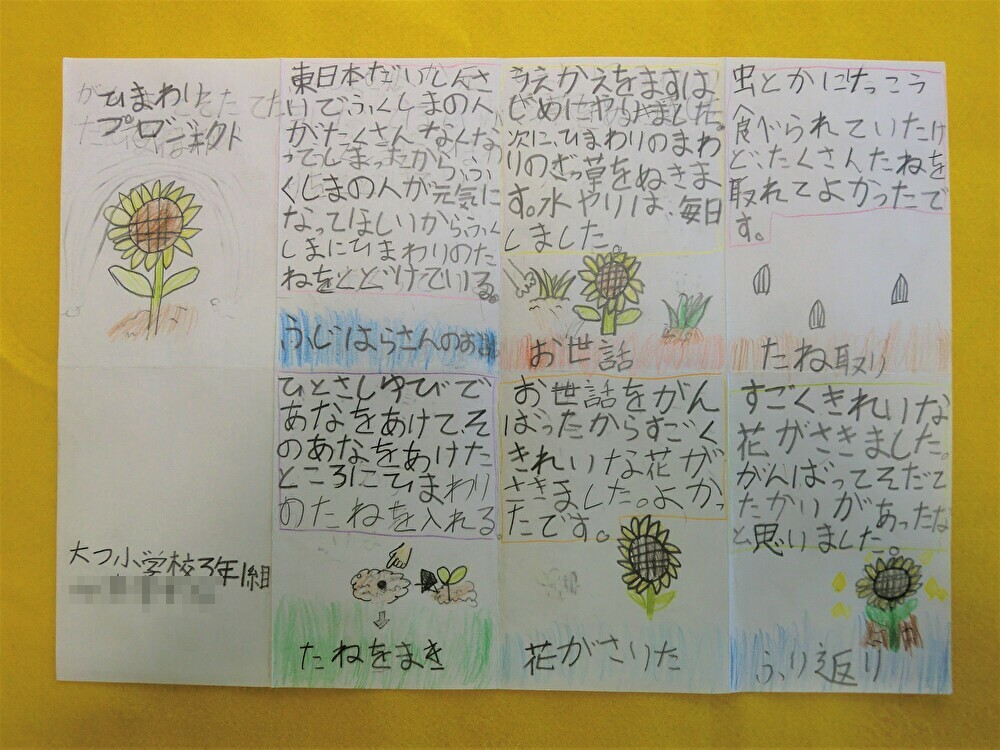 ひまわり
プロジェクト
大つ小学校3年1組
東日本だいしんさ
いでふくしまの人
がたくさんなくな
ってしまったから、ふ
くしまの人が元気に
なってほしいからふく
しまにひまわりのた
ねをとどけている。
ふじはらさんのお話
ひとさしゆびで
あなをあけて、そ
のあなをあけた
ところにひまわり
のたねを入れる。
たねをまき
うえかえをまずは
じめにやりました。
次に、ひまわりのまわ
りのざっ草をぬきま
す。水やりは、毎日
しました。
お世話
お世話をがん
ばったからすごく
きれいな花が
さきました。よかっ
たです。
花がさいた
虫とかにけっこう
食べられていたけ
ど、たくさんたねを
取れてよかったで
す。
たね取り
すごくきれいな
花がさきました。
がんばってそだて
たかいがあったな
と思いました。
ふり返り